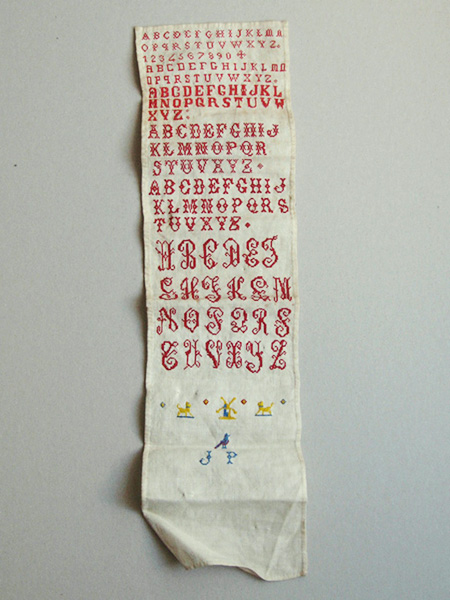 ABCDEFGHIJKLMN
OPQRSTUVWXYZ.
1234567890
ABCDEFGHIJKLMN
OPQRSTUVWXYZ.
ABCDEFGHIJKL
MNOPQRSTUVW
XYZ:
ABCDEFGHIJ
KLMNOPQR
STUVXYZ
ABCDEFGHIJ
KLMNOPQRS
TUVXYZ
ABCDEF
GHIJKLM
NOPQRS
TUVXYZ
J P